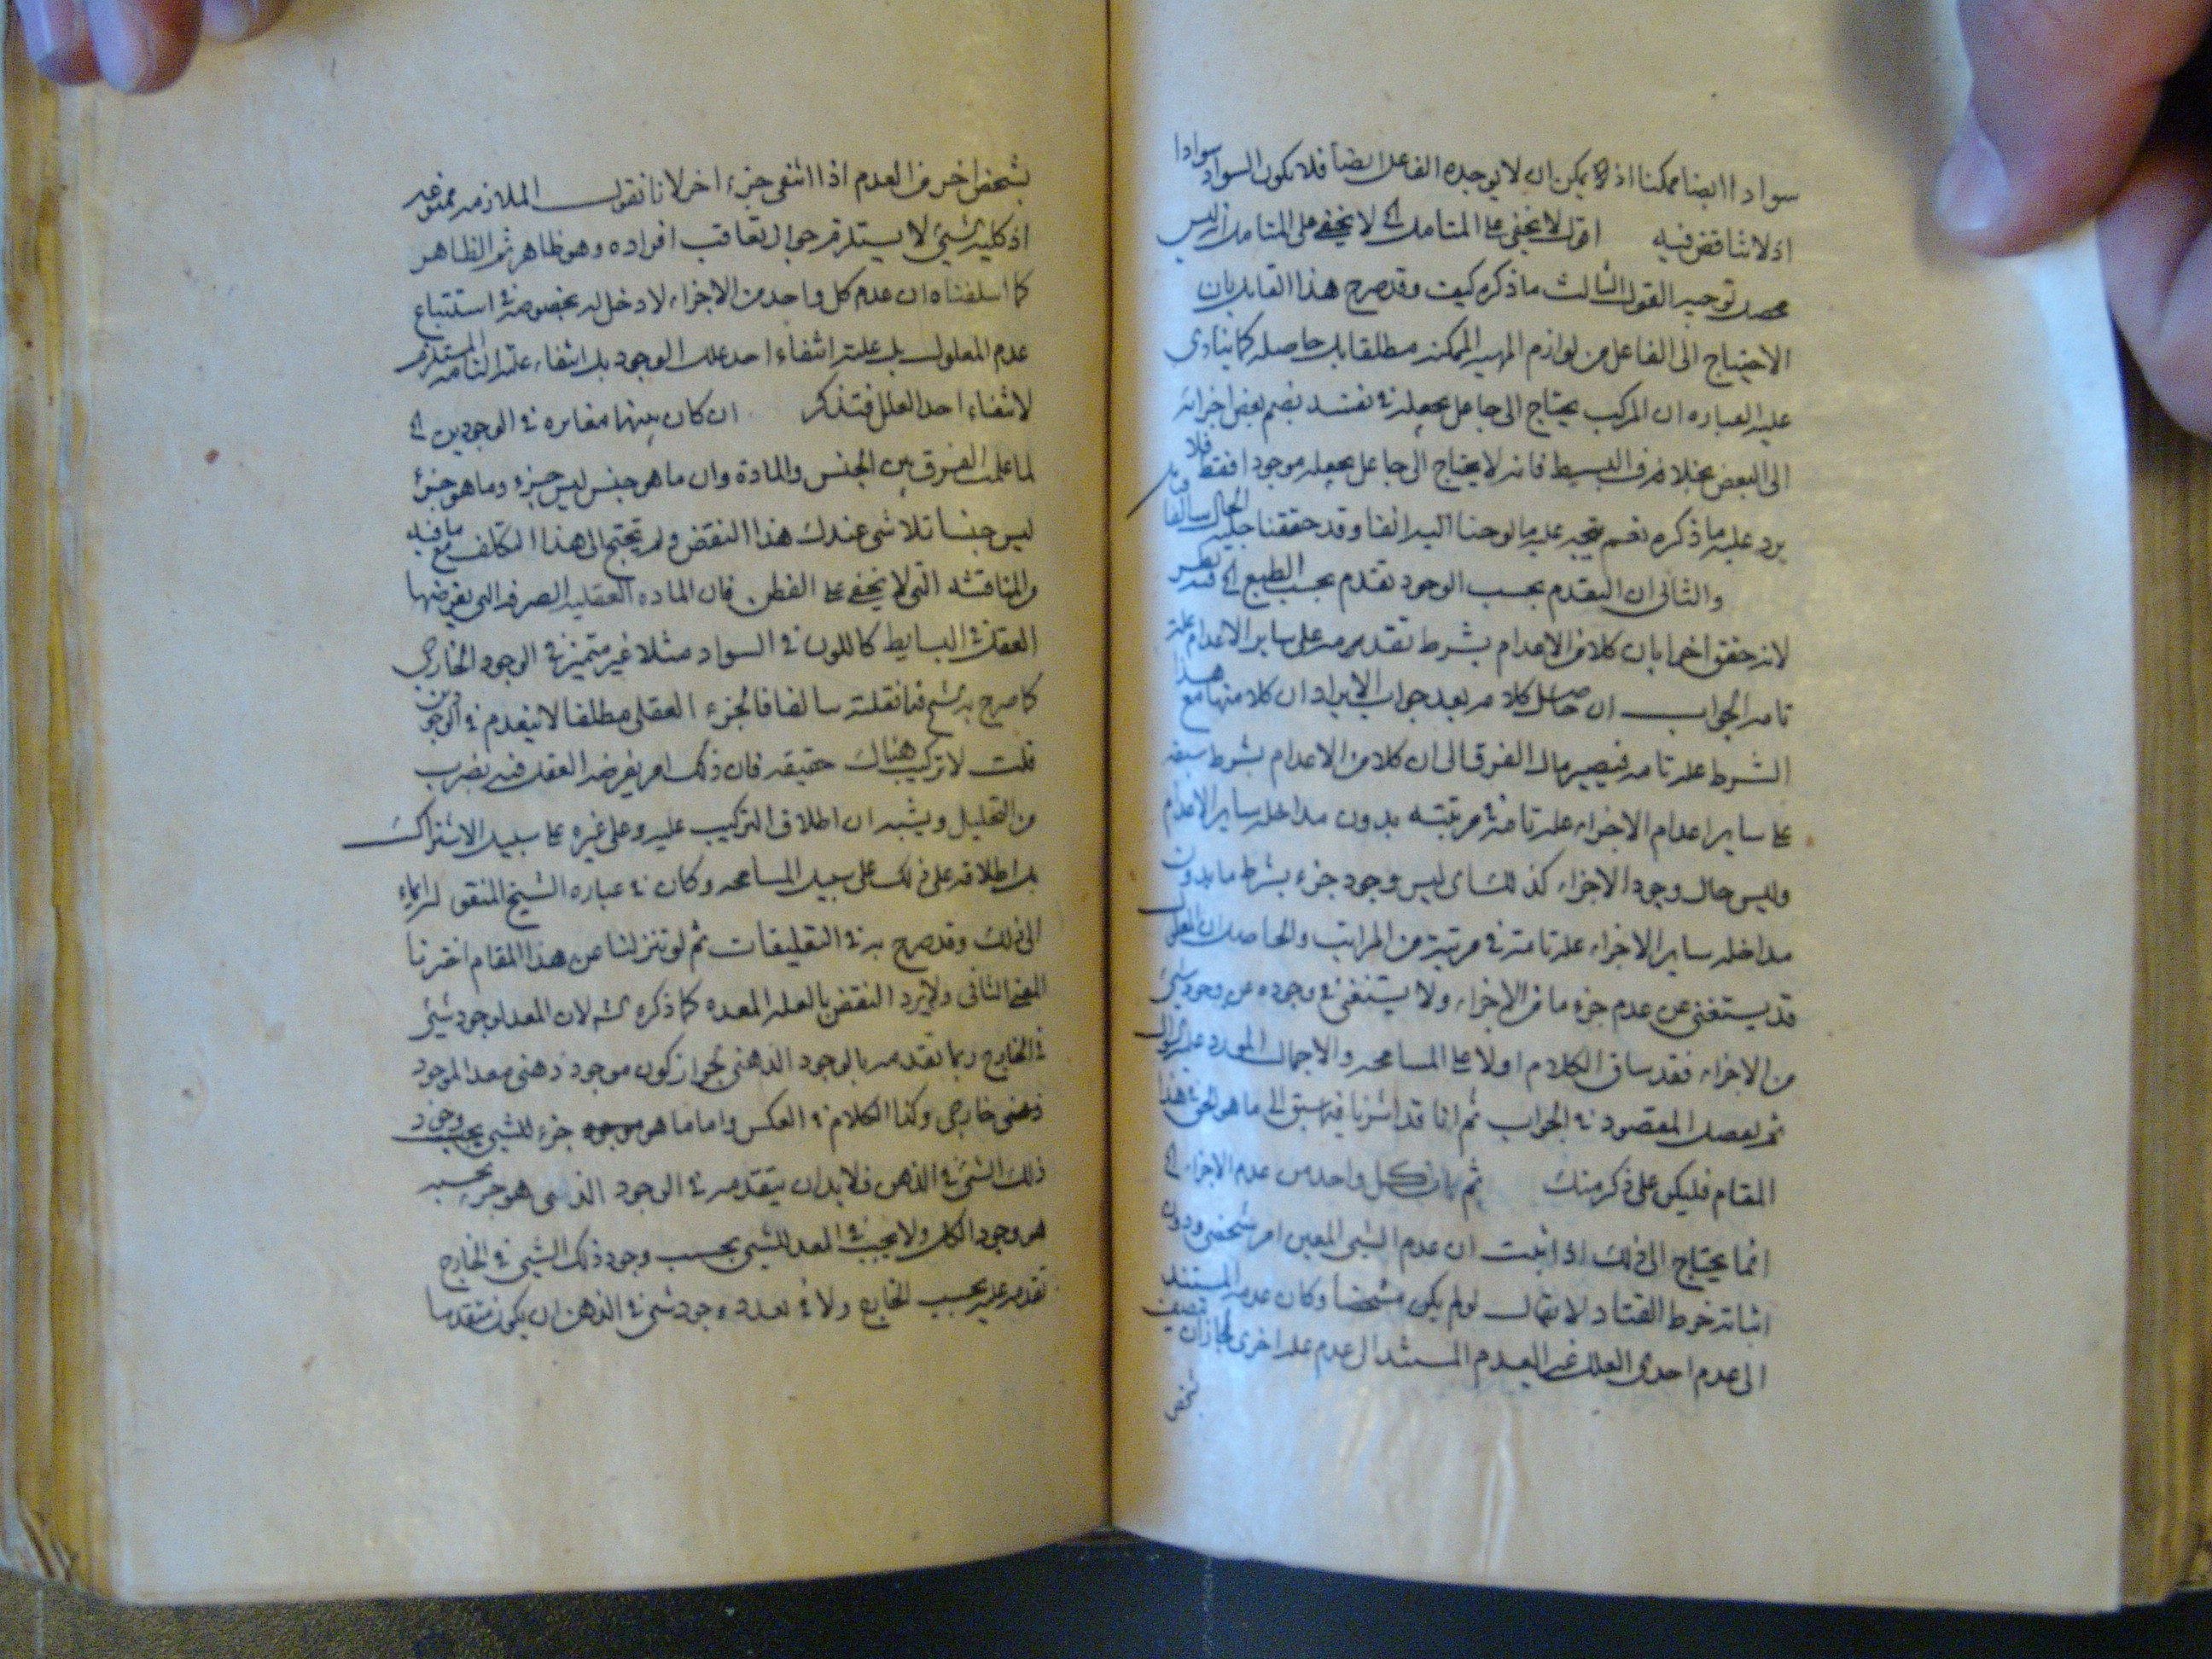 سوادا ايضا ممكنا اذ لا يمكن ان لا يوجده الفاعل ايضا فلا يكون السواد سوادا
اذ لا تناقض فيه اقول لا يخفى على المتامل الخ لا يخفى على المتامل انه ليس
محصل توجيه القول الثالث ما ذكره كيف وقد صرح هذا القايل بان
الاحتياج الى الفاعل من لوازم المهية الممكنة مطلقا بل حاصله كما ينادى
عليه العباره ان المركب يحتاج الى جاعل يجعله في نفسه بضم بعض اجزائه
الى البعض بخلاف البسيط فانه لا يحتاج الى جاعل يجعله موجودا فقط فلا
يرد عليه ما ذكره نعم يتجه عليه ما لوحنا اليه انفا وقد حققنا جلية الحال سالفا
والثاني ان التقدم بحسب الوجود تقدم بحسب الطبع الخ فيه نظر
لانه حقق اخرا بان كلا من الاعدام بشرط تقدمه على ساير الاعدام علة
تامه الجواب ان حاصل كلامه بعد جواب الايراد ان كلا منها مع هذا
الشرط علة تامه فيصير مال الفرق الى ان كلا من الاعدام بشرط سبقه
على ساير اعدام الاجزاء علة تامة في مرتبته بدون مداخله ساير الاعدام
وليس حال وجود الاجزاء كذلك اى ليس وجود جزء بشرط ما بدون
مداخله ساير الاجزاء علة تامة في مرتبة من المراتب والحاصل ان المعلول
قد يستغنى عن عدم جزء ما من الاجزاء ولا يستغنى في وجوده عن وجود شئ
من الاجزاء فقد ساق الكلام اولا على المسامحه والاجمال المورد عليه السوال
ثم يفصل المقصود في الجواب ثم انا قد اشرنا فيما سبق الى ما هو الحق في هذا
المقام فليكن على ذكر منك ثم بان كل واحد من عدم الاجزاء الخ
انما يحتاج الى ذلك اذا ثبت ان عدم الشئ المعين امر شخصى ودون
اثباته خرط القتاد لا يقال لو لم يكن مشخصا وكان عدمه المستند
الى عدم احدى العلل غير العدم المستند الى عدم علة اخرى لجاز ان يتصف
شخص
بشخص اخر من العدم اذا انتفى جزء اخر لانا نقول الملازمه ممنوعه
اذ كلية شئ لا يستلزم جواز تعاقب افراده وهو ظاهر ثم الظاهر
كما اسلفناه ان عدم كل واحد من الاجزاء لا دخل له بخصوصه في استتباع
عدم المعلول بل علته انتفاء احد علل الوجود بل انتفاء علته التامه المستلزم
لانتفاء احد العلل فتذكر ان كان بينهما مغايره في الوجودين الخ
لما علمت الفرق بين الجنس والمادة وان ما هو جنس ليس جزء وما هو جزء
ليس جنسا تلاشى عندك هذا النقض ولم تحتج الى هذا التكلف مع ما فيه
من المناقشه التى لا يخفى على الفطن فان الماده العقليه الصرفه التى يفرضها
العقل في البسايط كاللون في السواد مثلا غير متميز في الوجود الخارجى
كما صرح به الشيخ فيما نقلته سالفا فالجزء العقلى مطلقا لا يتقدم في الوجودين
قلت لا تركيب هناك حقيقه فان ذلك امر يفرضه العقل فيه بضرب
من التحليل ويشبه ان اطلاق التركيب عليه وعلى غيره على سبيل الاشتراك
بل اطلاقه على ذلك على سبيل المسامحه وكان في عباره الشيخ المنقوله ايماء
الى ذلك وقد صرح به في التعليقات ثم لو تنزلنا عن هذا المقام اخترنا
المعنى الثاني ولا يرد النقض بالعلة المعده كما ذكره لان المعد لوجود شئ
في الخارج ربما تقدمه بالوجود الذهنى لجواز كون موجود ذهنى معد الموجود
خارجى وكذا الكلام في العكس واما ما هو جزء للشئ بحسب وجود
ذلك الشئ في الذهن فلا بد ان يتقدمه في الوجود الذى هو جزء بحسبه
هو وجود الكل ولا يجب في المعد للشئ بحسب وجود ذلك الشئ في الخارج
تقدمه عليه بحسب الخارج ولا في معد وجود شئ في الذهن ان يكون متقدما